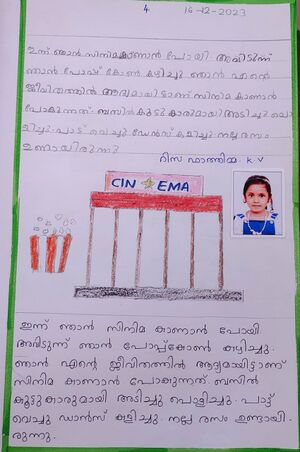 4 16-12-2023
ഇന്ന് ഞാൻ സിനിമകാണാൻ പോയി. അവിടുന്ന്
ഞാൻ പോപ്പ് കോൺ കഴിച്ചു. ഞാൻ എൻ്റെ
ജീവിതത്തിൽ ആദ്യമായിട്ടാണ് സിനിമ കാണാൻ
പോകുന്നത്. ബസിൽ കൂട്ടുകാരുമായി അടിച്ചു പൊ
ളിച്ചു. പാട്ട് വെച്ചു ഡേൻസ് കളിച്ചു. നല്ല രസം
ഉണ്ടായിരുന്നു
റിസ ഫാത്തിമ്മ K.V
CINEMA
ഇന്ന് ഞാൻ സിനിമ കാണാൻ പോയി
അവിടുന്ന് ഞാൻ പോപ്പ്കോൺ കഴിച്ചു.
ഞാൻ എൻ്റെ ജീവിതത്തിൽ ആദ്യമായിട്ടാണ്
സിനിമ കാണാൻ പോകുന്നത്. ബസിൽ
കൂട്ടുകാരുമായി അടിച്ചു പൊളിച്ചു. പാട്ട്
വെച്ചു ഡാൻസ് കളിച്ചു. നല്ല രസം ഉണ്ടായി-
രുന്നു.